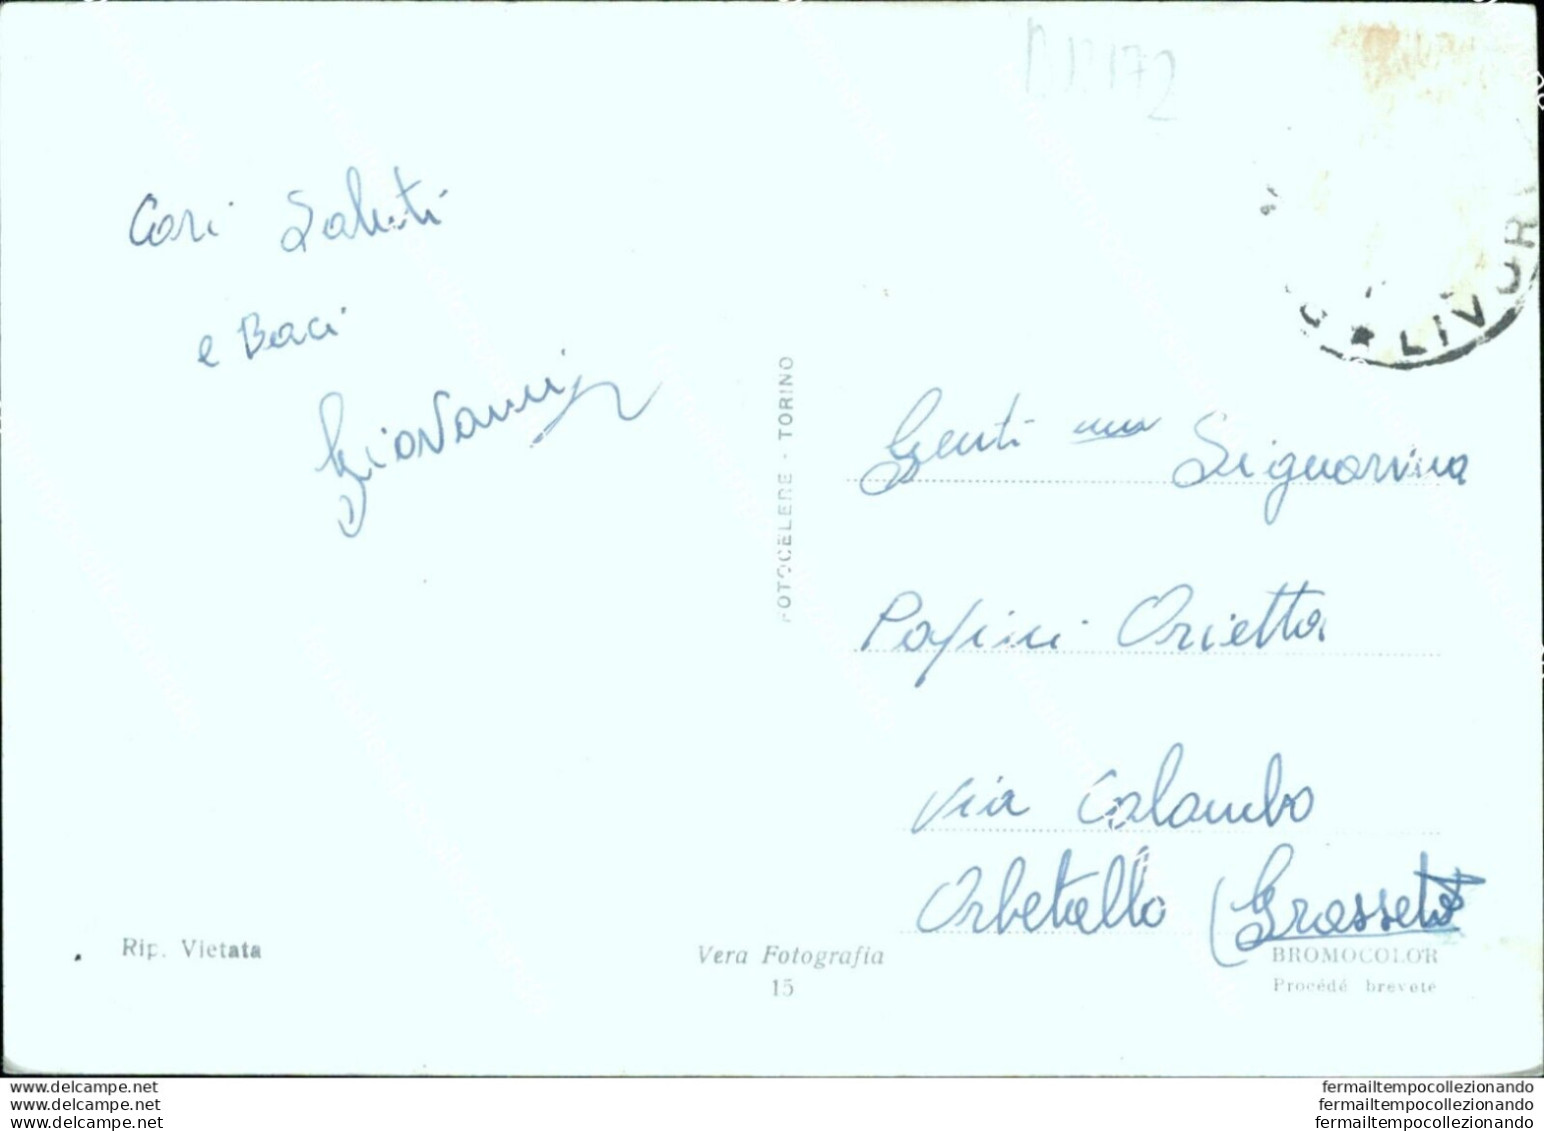 Cari Saluti
e Baci
Giovanni
FOTOCELERE - TORINO
LIVOR
Gent. ma Signorina
Papini Orietta
Via Colombo
Orbetello (Grosseto
Rip. Vietata
Vera Fotografia
15
BROMOCOLOR
Procédé breveté
www.delcampe.net
www.delcampe.net
www.delcampe.net
fermailtempocollezionando
fermailtempocollezionando
fermailtempocollezionando